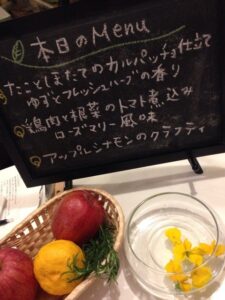 本日のMenu
たことほたてのカルパッチョ仕立て
ゆずとフレッシュハーブの香り
鶏肉と根菜のトマト煮込み
ローズマリー風味
アップルシナモンのクラフティ